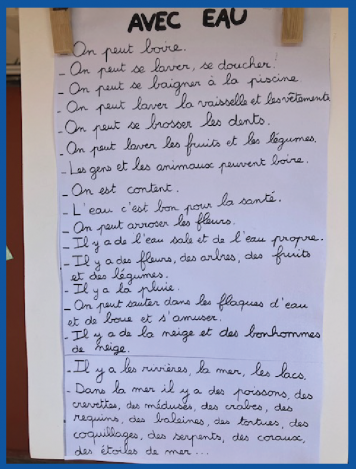 AVEC EAU
- On peut boire.
- On peut se laver, se doucher.
- On peut se baigner à la piscine
- On peut laver la vaisselle et les vêtements
- On peut se brosser les dents.
- On peut laver les fruits et les légumes.
- Les gens et les animaux peuvent boire.
- On est content.
- L'eau c'est bon pour la santé.
- On peut arroser les fleurs.
- Il y a de l'eau sale et de l'eau propre.
- Il y a des fleurs, des arbres, des fruits
et des légumes.
- Il y a la pluie.
- On peut sauter dans les flaques d'eau
et de boue et s'amuser.
- Il y a de la neige et des bonhommes
de neige.
- Il y a les rivières, la mer, les lacs.
- Dans la mer il y a des poissons, des
crevettes, des méduses, des crabes, des
requins, des baleines, des tortues, des
coquillages, des serpents, des coraux,
des étoiles de mer...